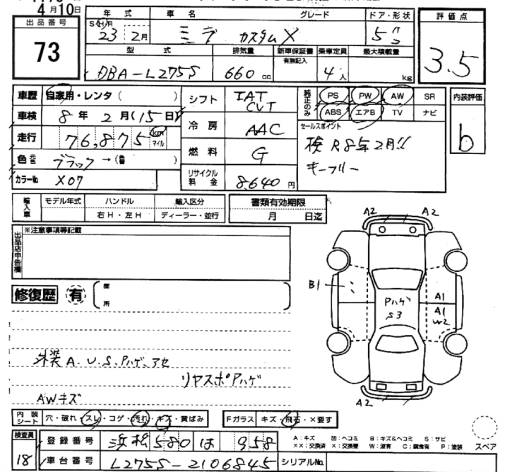 4月10日
出品番号
73
年式 車名 グレード ドア・形状
23 2月 ミラ カスタムX 5
型式 排気量 新車保証書 有無記入 乗車定員 最大積載量
DBA-L275S 660cc 4人 kg
評価点
3.5
車歴 自家用・レンタ( )
車検 8年2月(15日)
走行 76,875 km マイル
色 ブラック→( )
カラーNo X07
シフト IAT CVT
冷房 AAC
燃料 G
リサイクル料金 8640円
純正のみ PS PW AW SR
ABS エアB TV ナビ
セールスポイント
検R8年2月!!
キーフリー
内装評価
b
輸入車 モデル年式 ハンドル 輸入区分
右H・左H ディーラー・並行
書類有効期限
月 日迄
出品店申告欄
※注意事項等記載
修復歴 有 箇所
外装A.U.S.Pハゲ.アセ
リヤスポPハゲ
AWキズ
A2 A2
B1
Pハゲ
S3
A1
A1
W2
A2 A2
内装シート 穴・破れ・スレ・コゲ・汚れ・キズ・黄ばみ
Fガラス キズ・飛石・×要す
検査員
18
登録番号 浜松580は 958
車台番号 L275S-2106845
シリアルNo.
A:キズ 凹:ヘコミ B:キズ&ヘコミ S:サビ
××:交換済 X:要交換 W:波有 C:腐食有 P:塗装
スペア